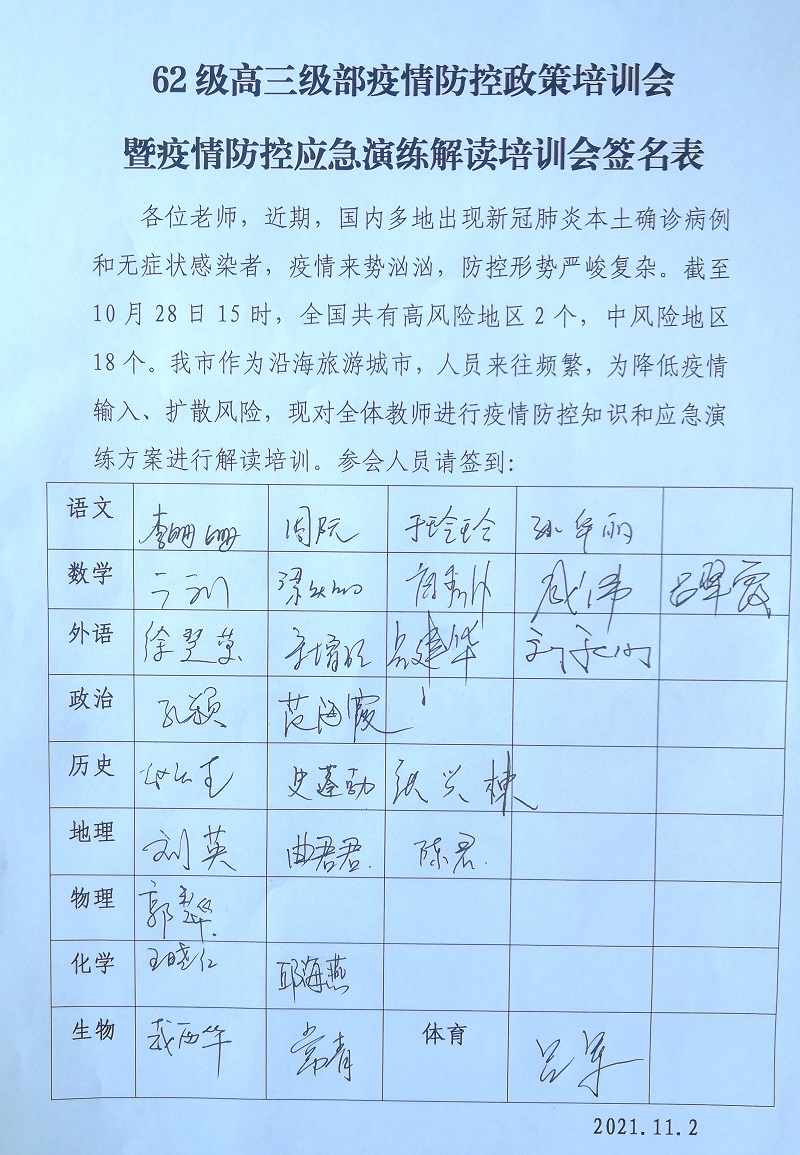 62级高三级部疫情防控政策培训会
暨疫情防控应急演练解读培训会签名表
各位老师，近期，国内多地出现新冠肺炎本土确诊病例
和无症状感染者，疫情来势汹汹，防控形势严峻复杂。截至
10月28日15时，全国共有高风险地区2个，中风险地区
18个。我市作为沿海旅游城市，人员来往频繁，为降低疫情
输入、扩散风险，现对全体教师进行疫情防控知识和应急演
练方案进行解读培训。参会人员请签到：
语文 李珊珊 周阮 于玲玲
数学
外语
政治 孔颖 范海霞
历史 史蓬勃 张兴栋
地理 刘英 曲君君 陈君
物理
化学 王晓仁 邱海燕
生物 常青 体育 吕军
2021.11.2